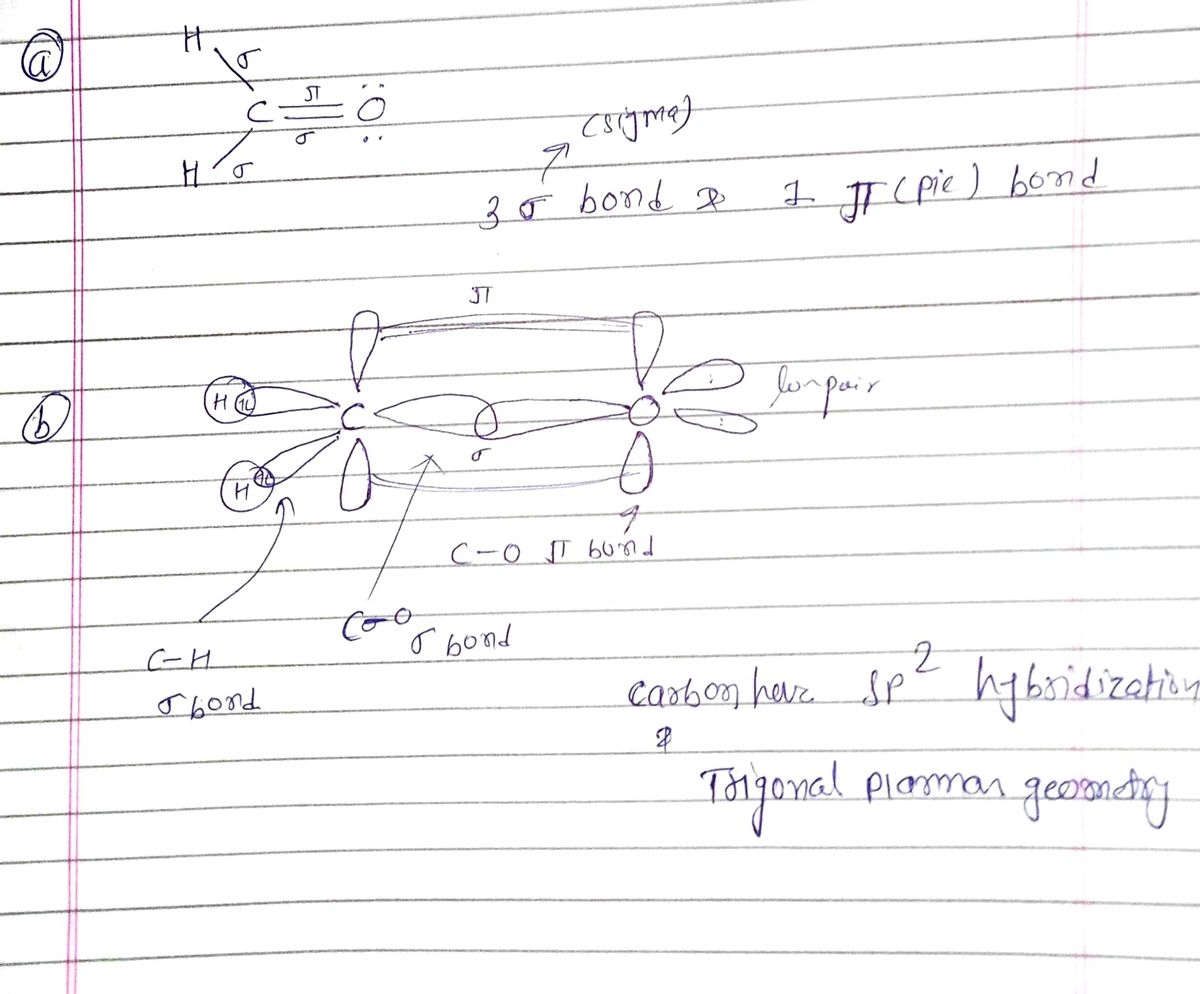 (a)
H
σ
π
C = Ö:
σ
H σ
(sigma)
3 σ bond & 1 π (pie) bond
π
(b)
H 1
C
O
lonpair
H
σ
C-O π bond
C-O
σ bond
C-H
σ bond
carbon have sp² hybridization
&
Trigonal planar geometry